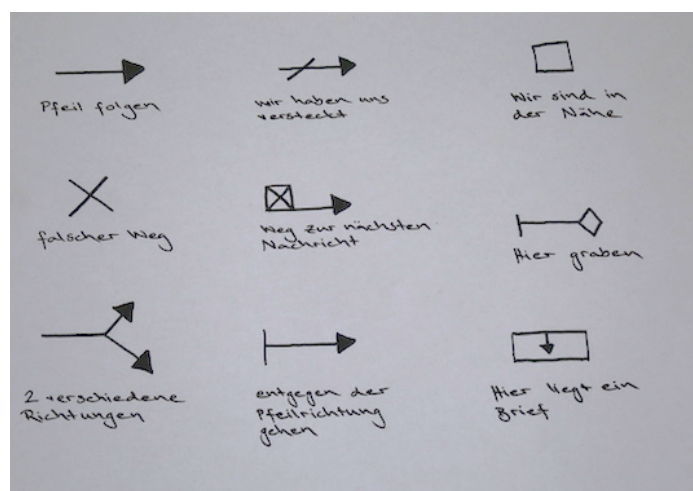 Pfeil folgen
wir haben uns
versteckt
Wir sind in
der Nähe
falscher Weg
Weg zur nächsten
Nachricht
Hier graben
2 verschiedene
Richtungen
entgegen der
Pfeilrichtung
gehen
Hier liegt ein
Brief